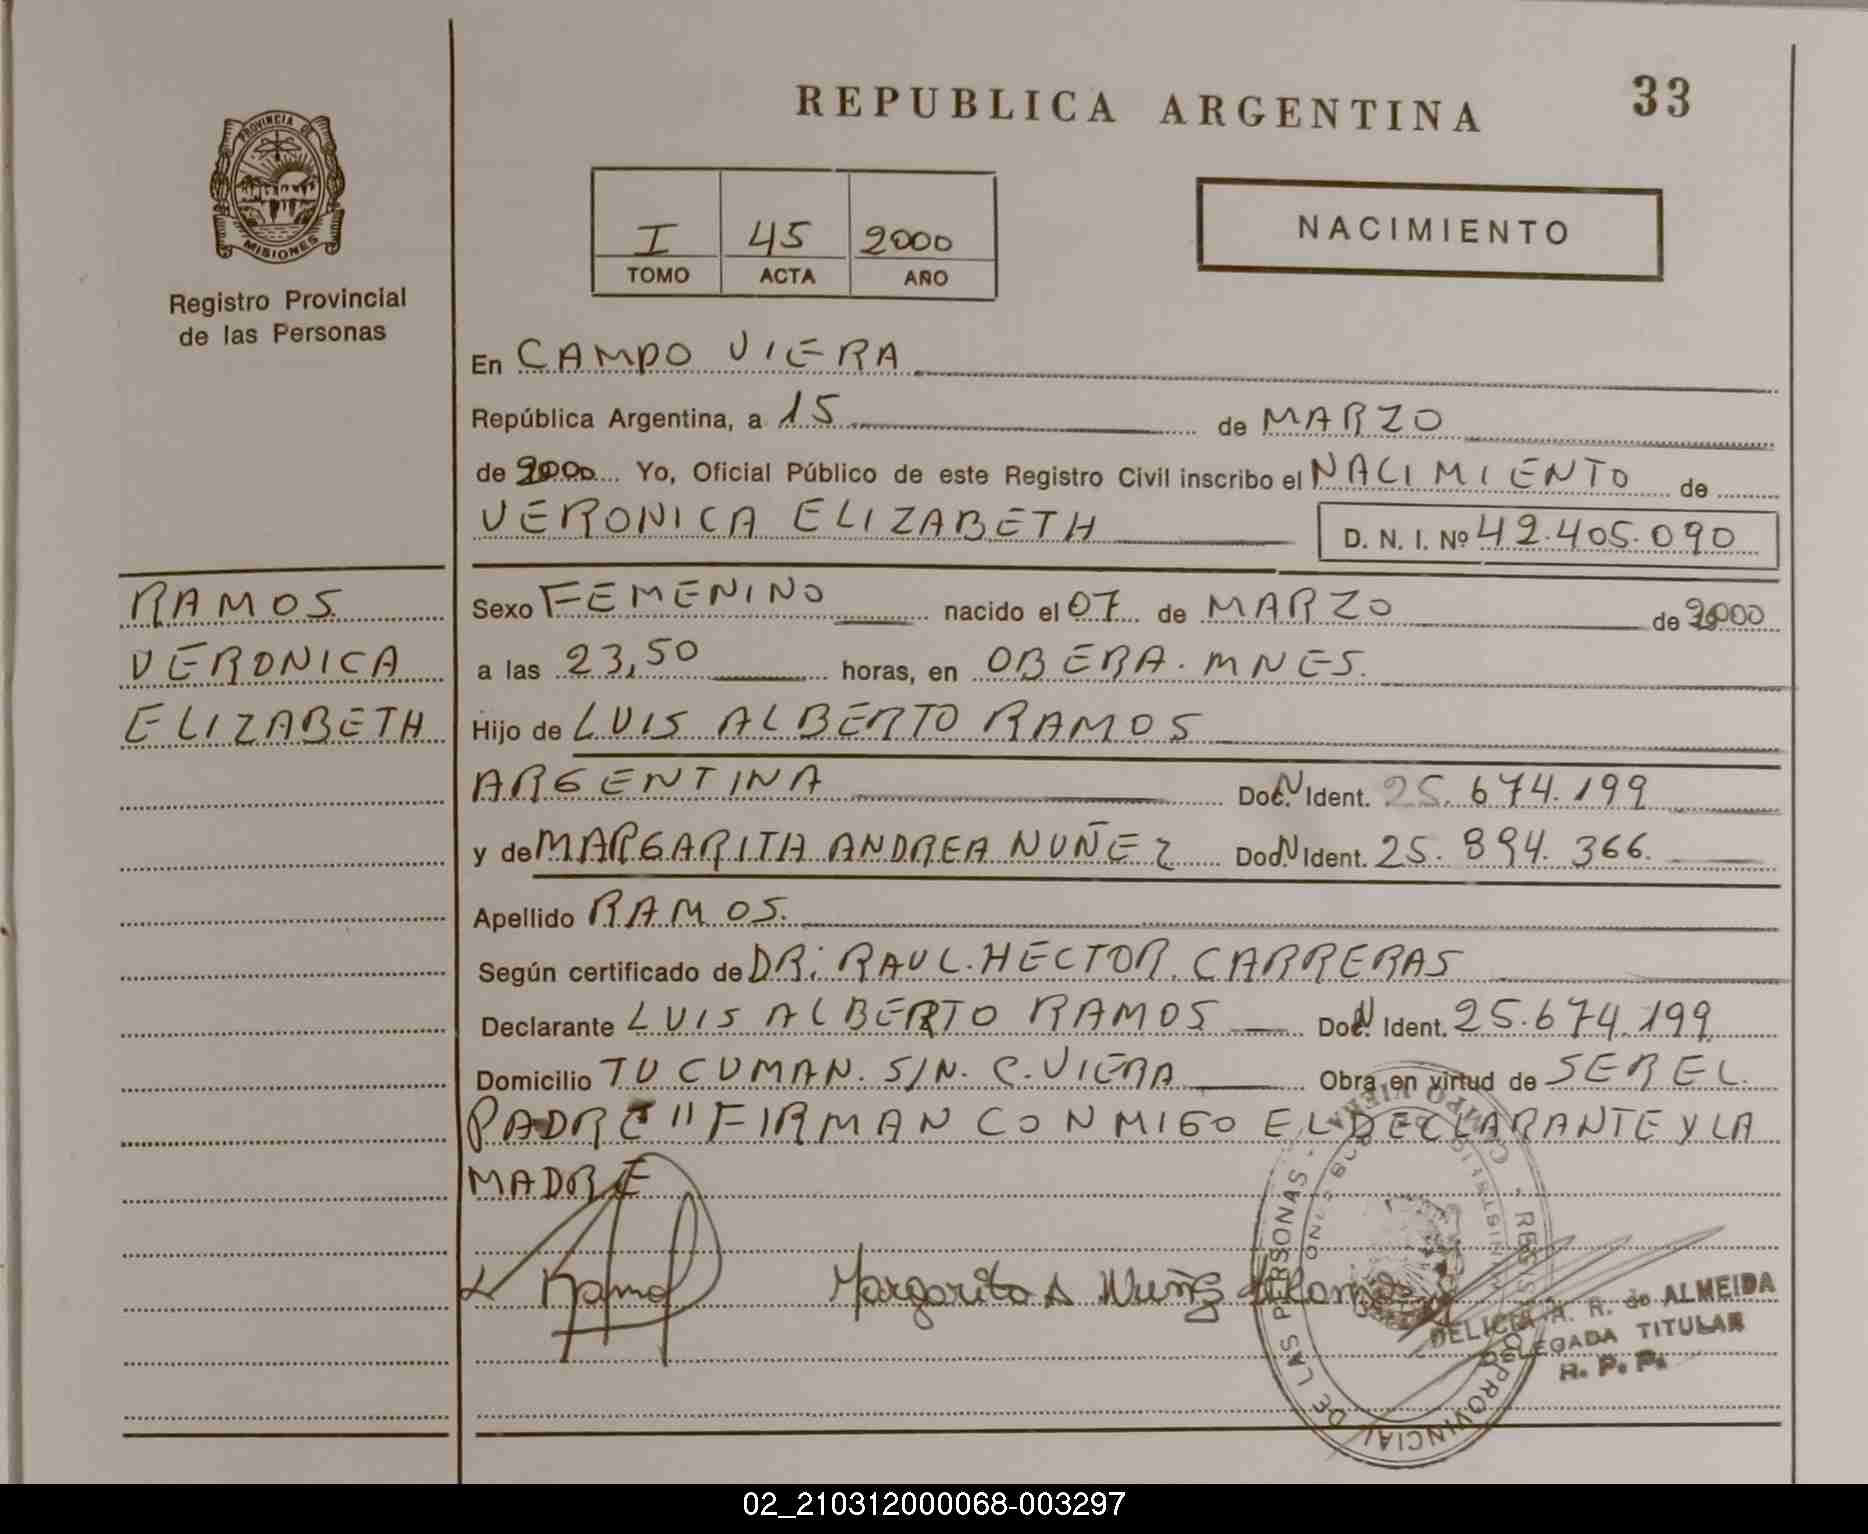 REPUBLICA ARGENTINA
33
PROVINCIA DE
MISIONES
Registro Provincial
de las Personas
I 45 2000
TOMO ACTA AÑO
NACIMIENTO
En CAMPO VIERA
República Argentina, a 15 de MARZO
de 2000 Yo, Oficial Público de este Registro Civil inscribo el NACIMIENTO de
VERONICA ELIZABETH D. N. I. Nº 42.405.090
RAMOS
VERONICA
ELIZABETH
Sexo FEMENINO nacido el 07 de MARZO de 2000
a las 23,50 horas, en OBERA. MNES.
Hijo de LUIS ALBERTO RAMOS
ARGENTINA Doc. N Ident. 25.674.199
y de MARGARITA ANDREA NUÑEZ Doc. N Ident. 25.894.366.
Apellido RAMOS.
Según certificado de DR: RAUL.HECTOR.CARRERAS
Declarante LUIS ALBERTO RAMOS Doc. N Ident. 25.674.199
Domicilio TUCUMAN. S/N. C.VIERA Obra en virtud de SER EL
PADRE " FIRMAN CONMIGO EL DECLARANTE Y LA
MADRE
Ramos
Margarita A Nuñez de Ramos
REG. PROVINCIAL DE LAS PERSONAS - CAMPO VIERA -
DELICIA A. R. de ALMEIDA
DELEGADA TITULAR
R. P. P.
02_210312000068-003297